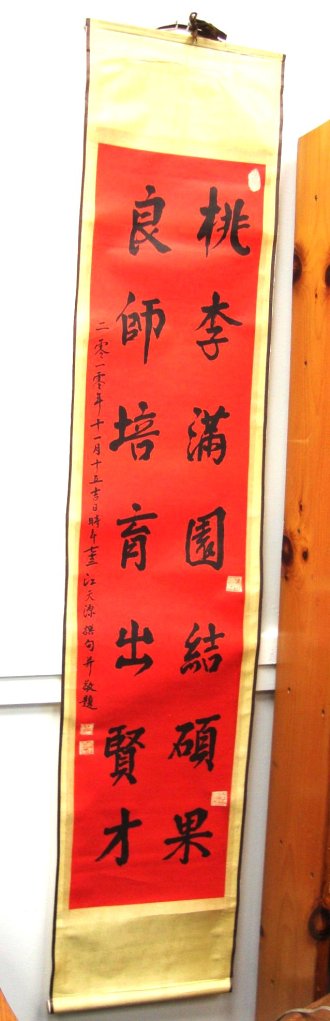 桃李滿園結碩果
良師培育出賢才
二零一零年十一月十五吉日時年七十三 江天深撰句并敬題